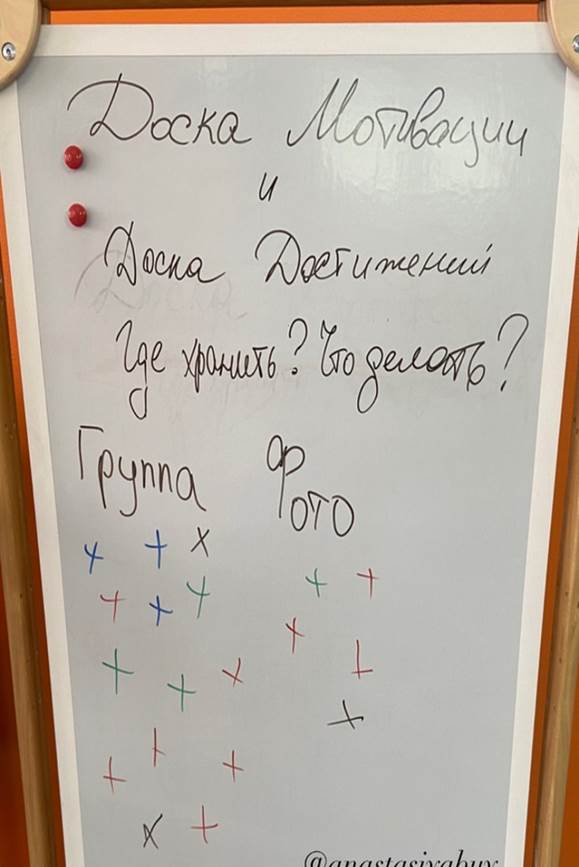 Доска Мотивации
и
Доска Достижений
Где хранить? Что делать?
Группа Фото
+ + x
+ + + + +
+ +
+ + + +
+
+ + +
x +
@anastasiyabuv